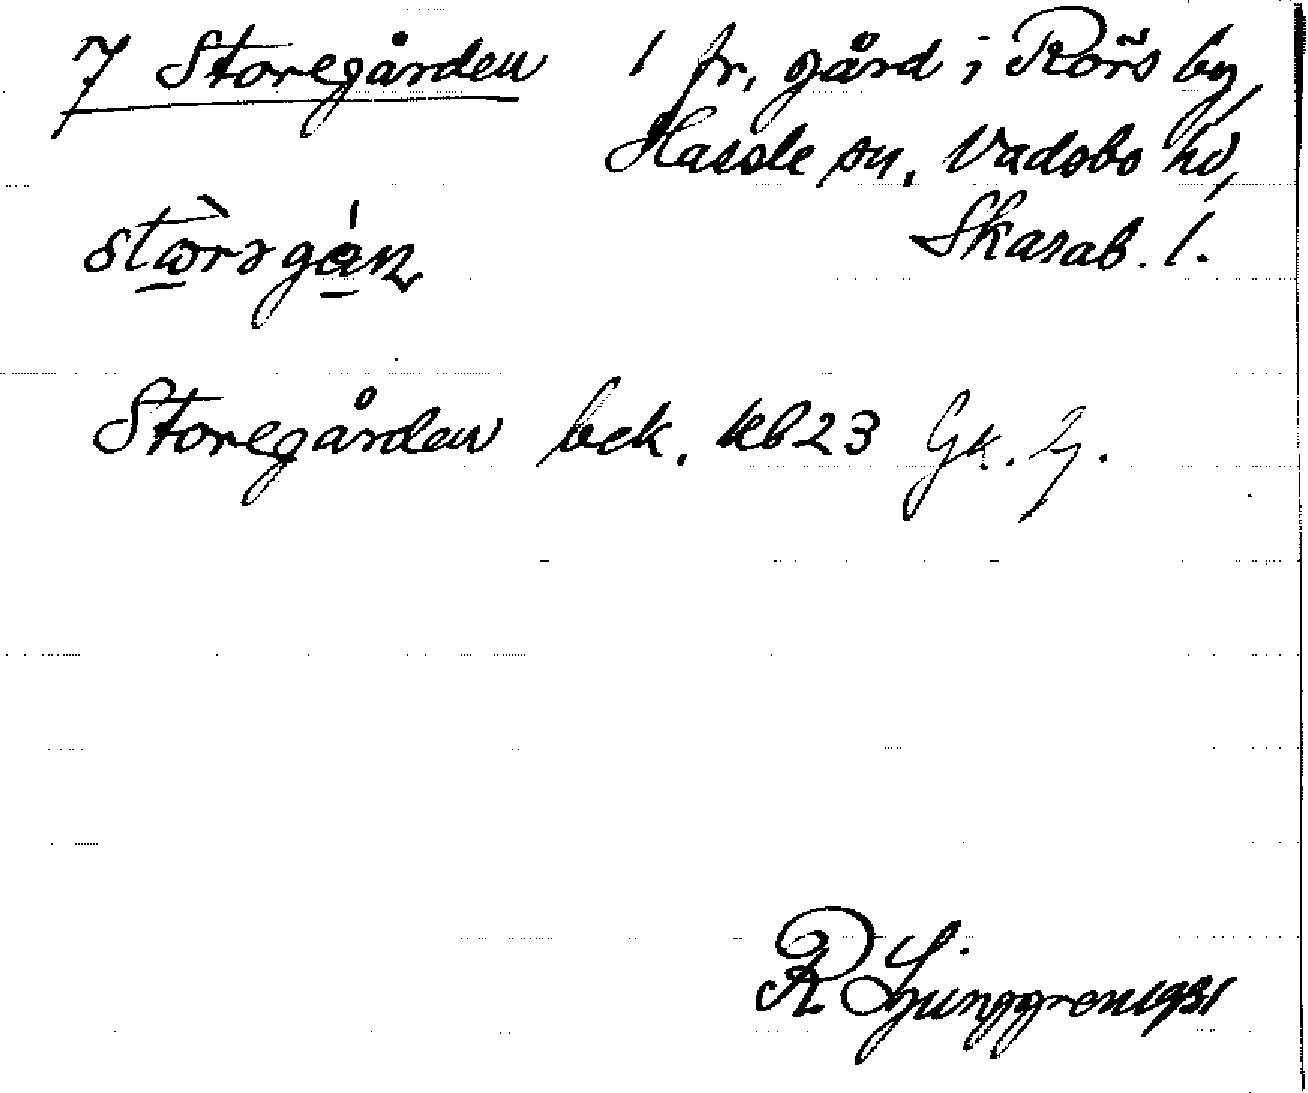 7 Storegården 1 fr. gård i Rörs by,
Hassle sn, Vadsbo hd,
Skarab. l.
Storegården bek. kb 23 Gk.
R Ljunggren 1931